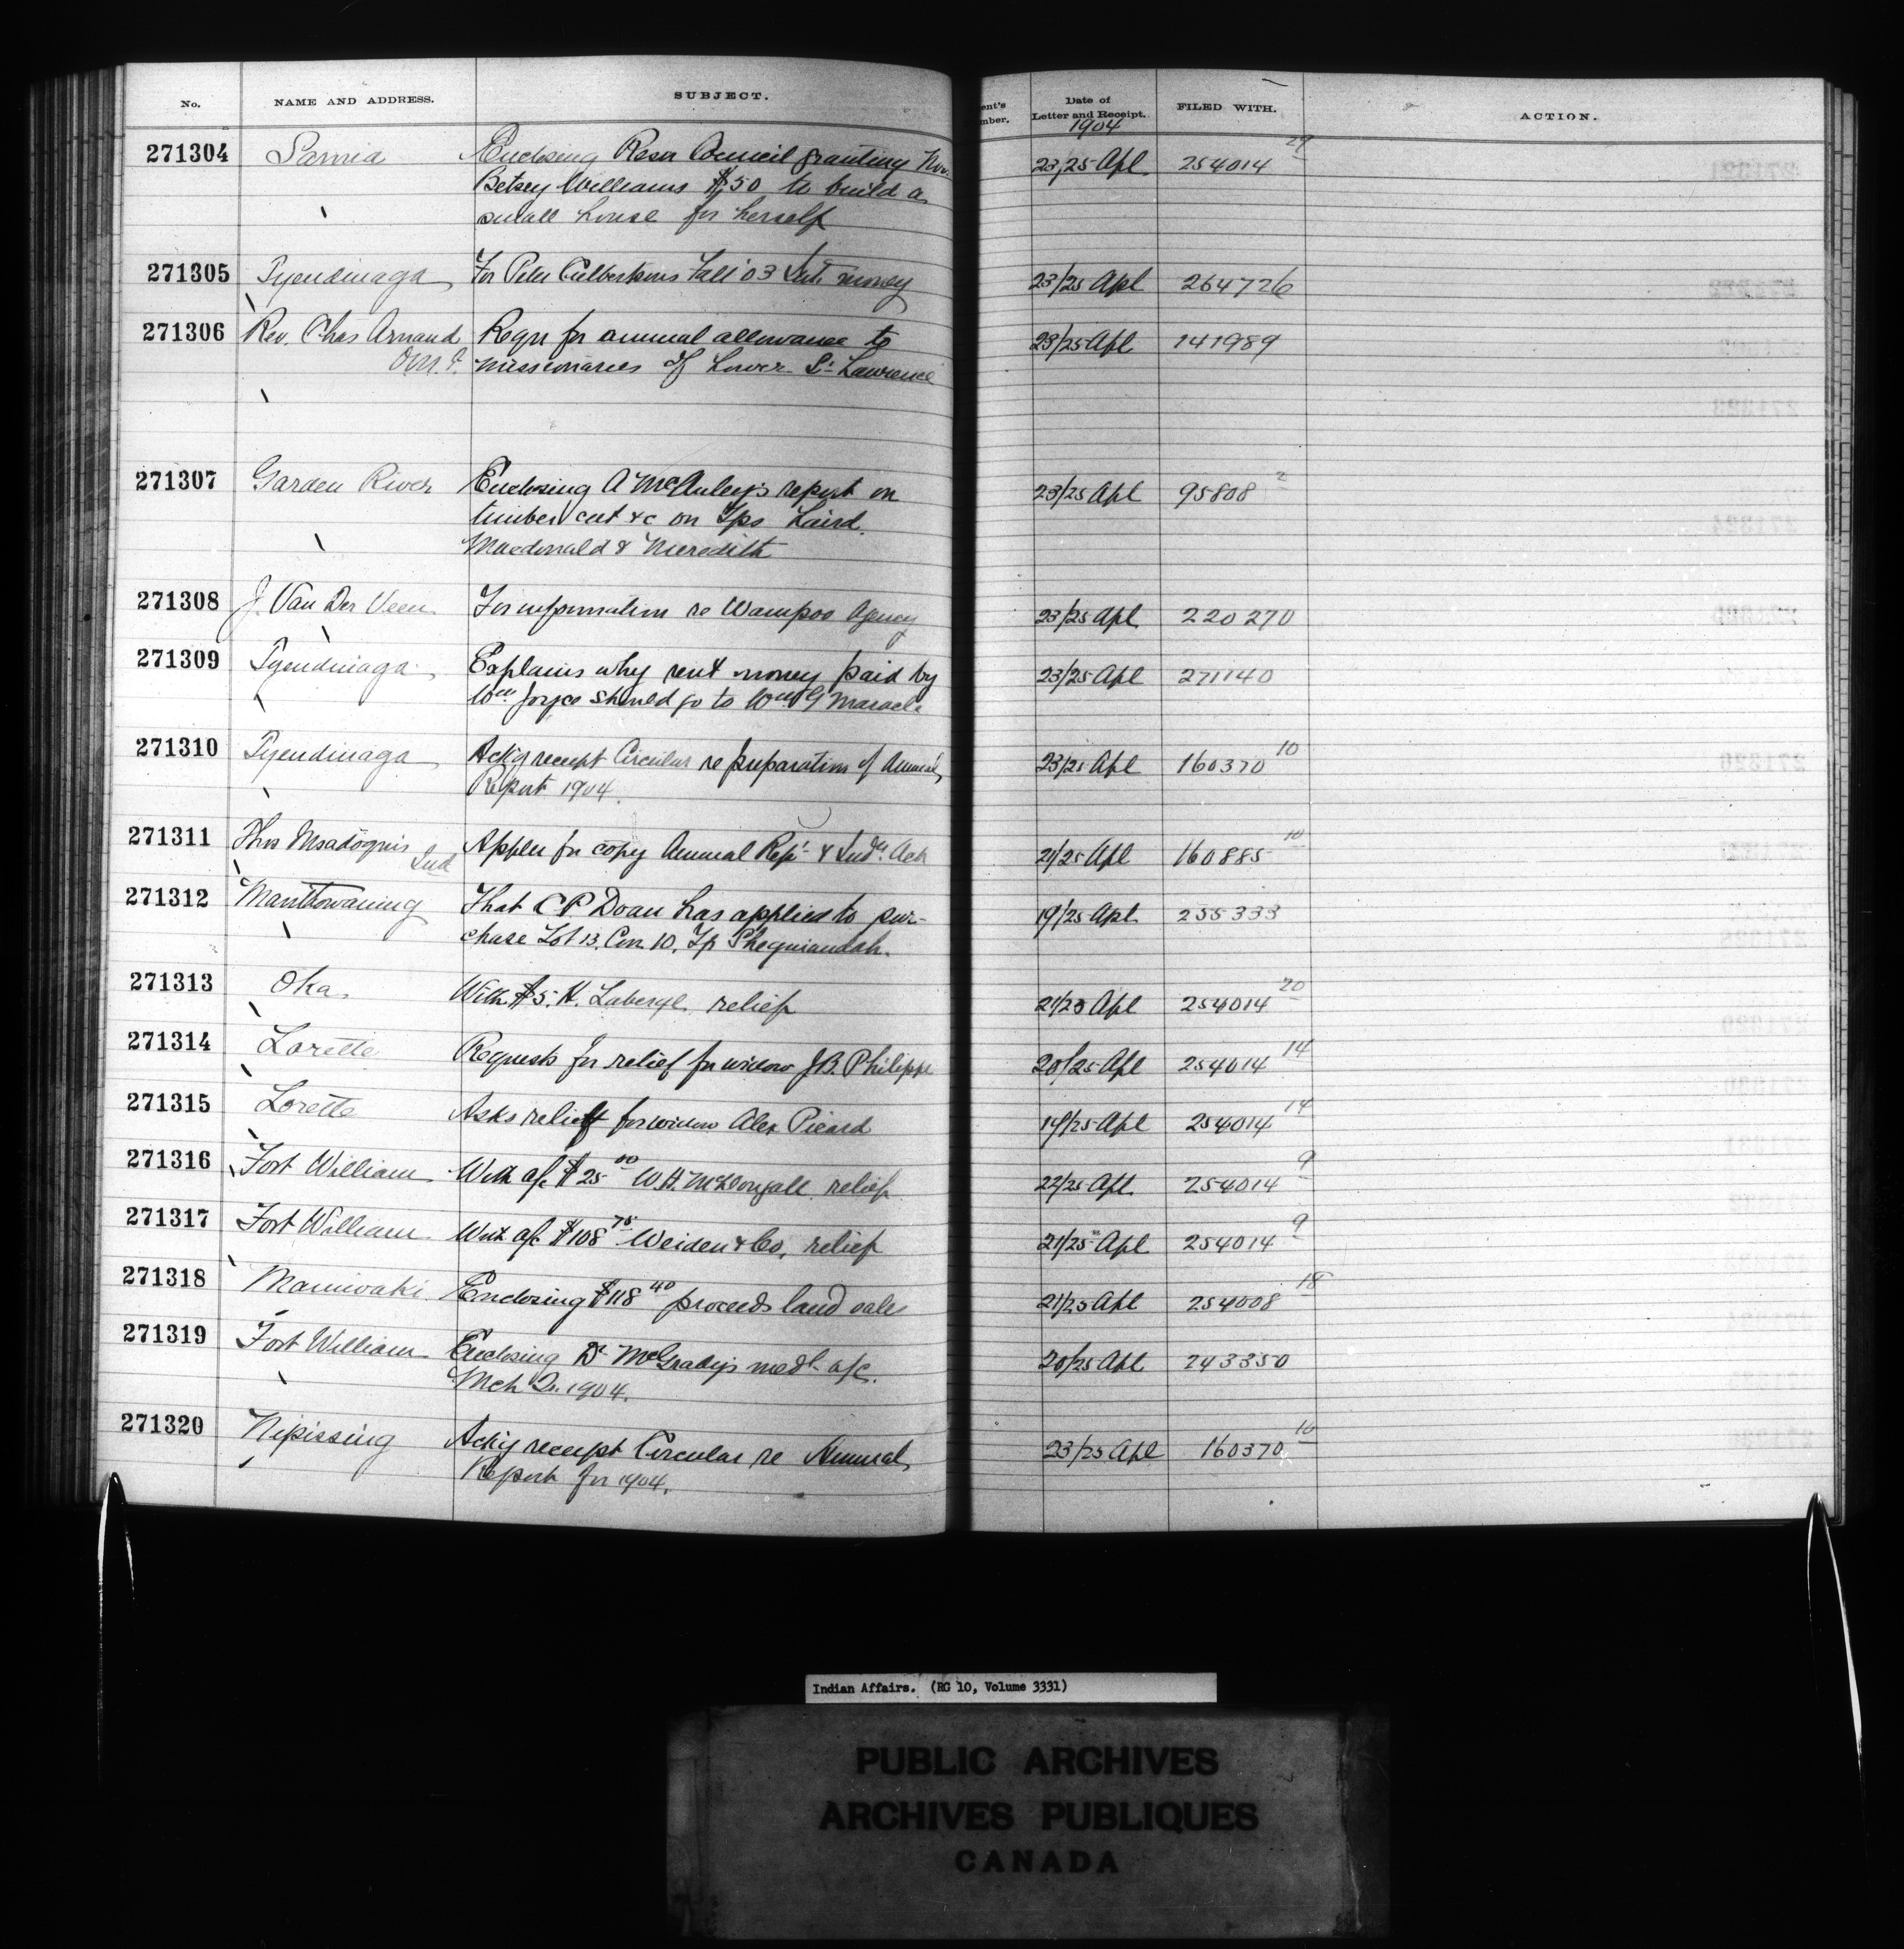 No. NAME AND ADDRESS. SUBJECT. ent's mber. Date of Letter and Receipt. FILED WITH. ACTION.
1904
271304 Sarnia Enclosing Resn Council granting 23/25 Apl 254014 29
Betsey Williams $50 to build a
small house for herself
271305 Tyendinaga For Peter Culbertsons Fall '03 Int. money 23/25 Apl 264726
271306 Rev. Chas Arnaud Reqn for annual allowance to 23/25 Apl 141989
O.M.I. missionaries of Lower St Lawrence
271307 Garden River Enclosing A McAuley's report on 23/25 Apl 95808 2
timber cut &c on Tps Laird
Macdonald & Meredith
271308 J. Van Der Veen For information re Wampoo Agency 23/25 Apl 220270
271309 Tyendinaga Explains why rent money paid by 23/25 Apl 271140
Wm Joyce should go to Wm G Maracle
271310 Tyendinaga Ack'g receipt Circular re preparation of Annual 23/25 Apl 160370 10
Report 1904.
271311 Thos Msadoquis Appln for copy Annual Rept & Indn Act 21/25 Apl 160885 10
Ind
271312 Manitowaning That C P Doan has applied to pur- 19/25 Apl 255333
chase Lot 13, Con. 10, Tp Sheguiandah.
271313 Oka With $5. H. Laberge relief 21/25 Apl 254014 20
271314 Lorette Requests for relief for widow J.B. Philippe 20/25 Apl 254014 14
271315 Lorette Asks relief for widow Alex Picard 19/25 Apl 254014 14
271316 Fort William With a/c $25 00 W.H. McDougall relief 22/25 Apl 254014 9
271317 Fort William With a/c $108 75 Weiden & Co. relief 21/25 Apl 254014 9
271318 Maniwaki Enclosing $118 40 proceeds land sales 21/25 Apl 254008 18
271319 Fort William Enclosing Dr McGrady's medl a/c. 20/25 Apl 243350
Mch Qr. 1904.
271320 Nipissing Ack'g receipt Circular re Annual 23/25 Apl 160370 10
Report for 1904.
Indian Affairs. (RG 10, Volume 3331)
PUBLIC ARCHIVES
ARCHIVES PUBLIQUES
CANADA